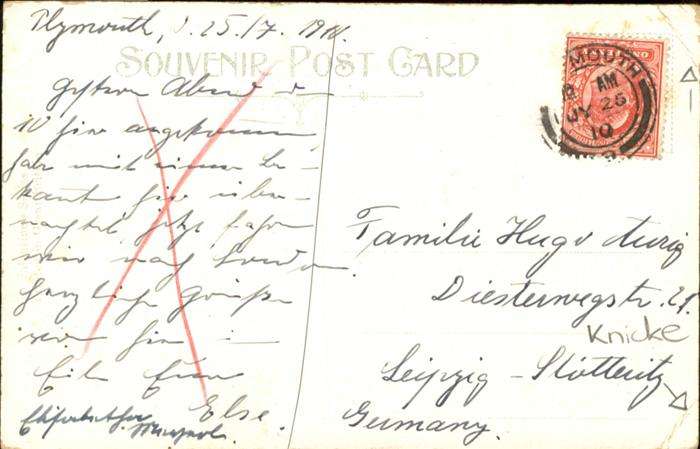 Plymouth, d. 25./7. 1910.
SOUVENIR POST CARD
Gestern Abend um
10 hier angekommen,
habe mit einer Be-
kannt hier über-
nachtet jetzt fahren
wir nach London.
herzliche Grüße
von hier
Eure
Else.
PLYMOUTH
AM
JY 25
10
Familie Hugo Aurig
Diesterwegstr. 21.
Knicke
Leipzig - Stötteritz
Germany.